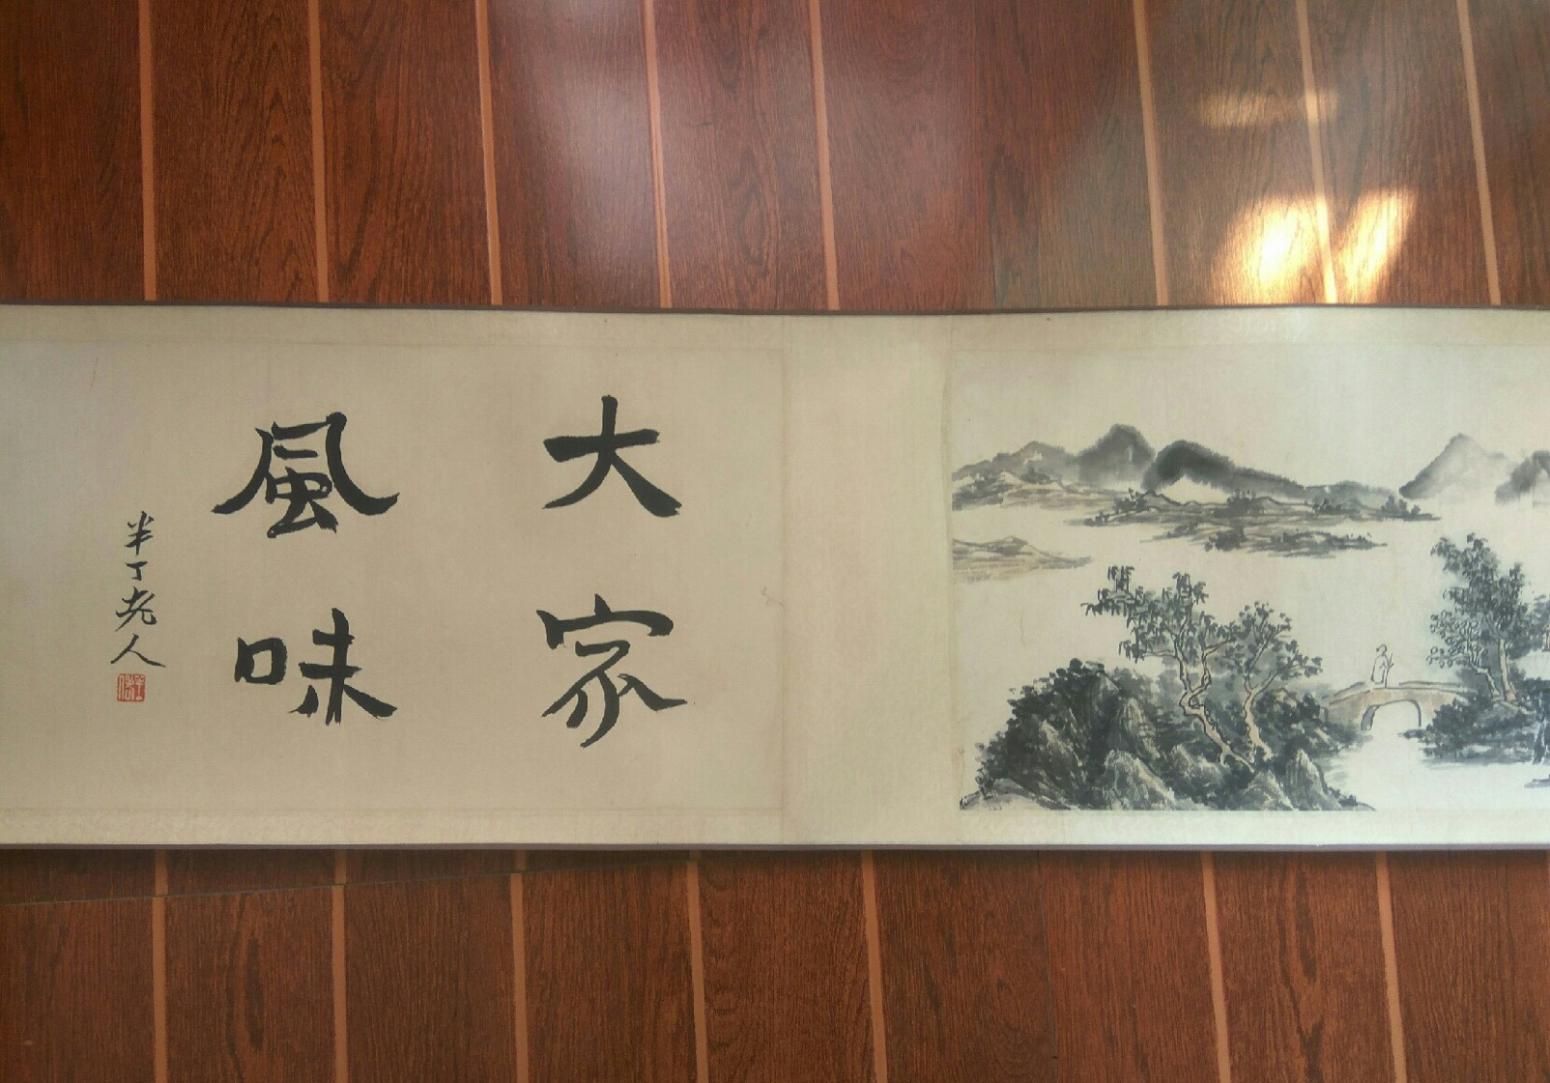 大家
風味
半丁老人